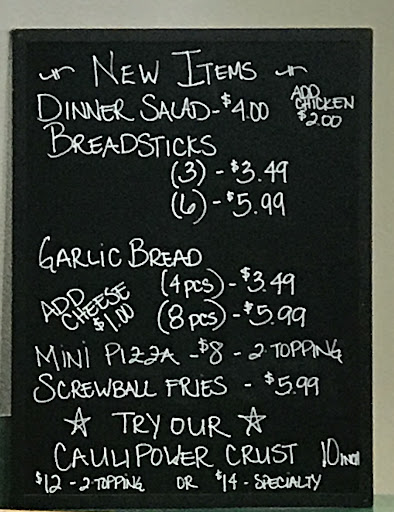 NEW ITEMS
DINNER SALAD - $4.00
ADD
CHICKEN
$2.00
BREADSTICKS
(3) - $3.49
(6) - $5.99
GARLIC BREAD
(4 pcs) - $3.49
ADD
CHEESE
$1.00
(8 pcs) - $5.99
MINI PIZZA - $8 - 2 TOPPING
SCREWBALL FRIES - $5.99
☆ TRY OUR ☆
CAULIPOWER CRUST 10 INCH
$12 - 2 TOPPING OR $14 - SPECIALTY